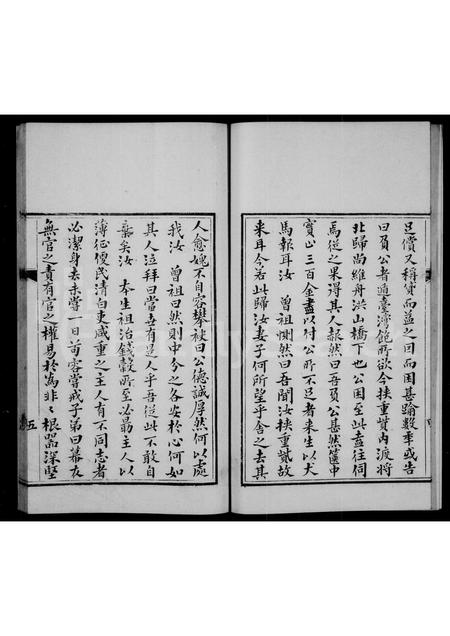 足償又稱貸而益之因而困甚踰數年或告
曰負公者適臺灣飽所欲今挾重貲內渡將
北歸尚維舟洪山橋下也公困至此盍往伺
焉從之果得其人赧然曰吾負公甚然篋中
實止三百金盡以付公所不足者来生以犬
馬報耳汝 曾祖惻然曰吾聞汝挾重貲故
来耳今若此歸汝妻子何所望乎舍之去其
人愈媿不自容攀袂曰公德誠厚然何以處
我汝 曾祖曰然則中分之各安於心何如
其人泣拜曰當世有是人乎吾從此不敢自
棄矣汝 本生祖治錢穀所至必勗主人以
薄征便民清白吏咸重之主人有不同志者
必潔身去未嘗一日苟容嘗戒子弟曰幕友
無官之責有官之權易於為非〻根器深堅
五